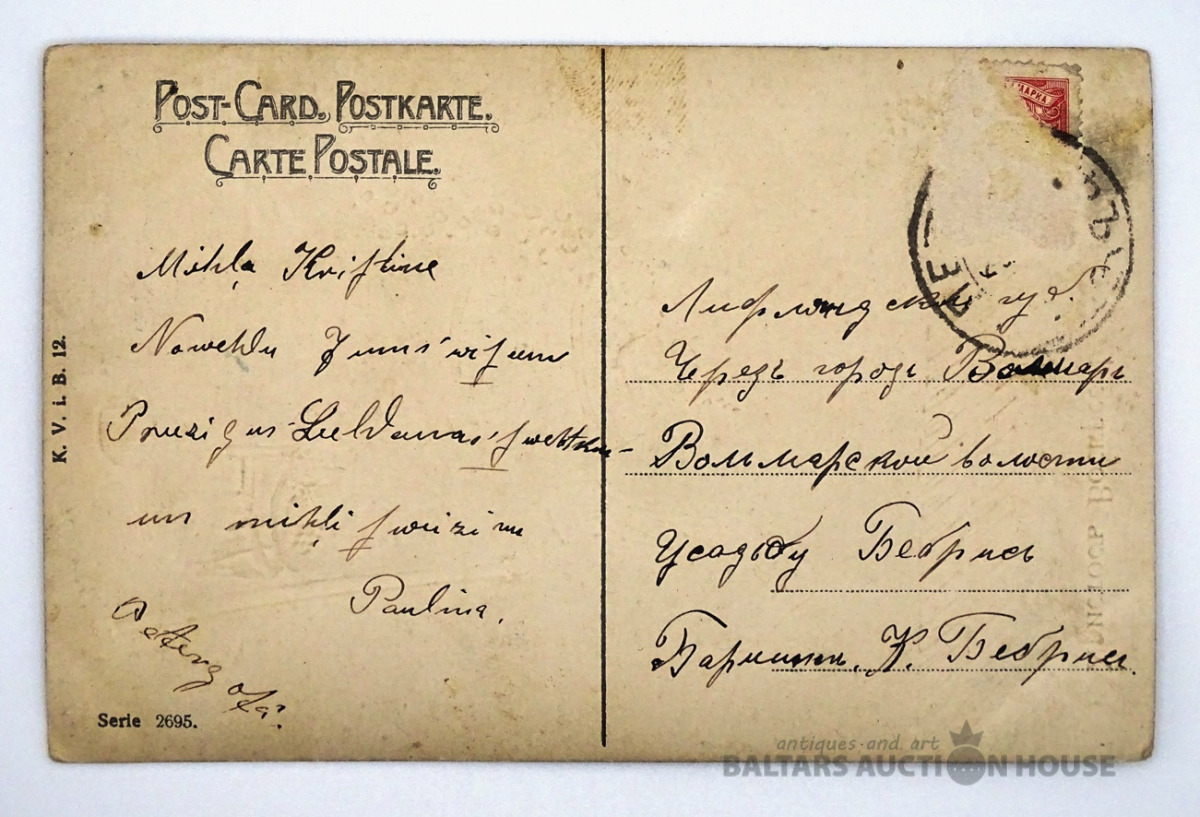 POST-CARD. POSTKARTE.
CARTE POSTALE.
K. V. i. B. 12.
Mihļa Kristine
Nowehlu Jums wisum
Preezigus Leeldenas swehtkus
un mihļi sweizinu
Paulina.
Serie 2695.
МАРКА
ПЕТ
Лифляндская губ.
Черезъ городъ Вольмаръ
Вольмарской волости
Усадьбу Бебрисъ
К. Бебрисъ.
antiques and art
BALTARS AUCTION HOUSE